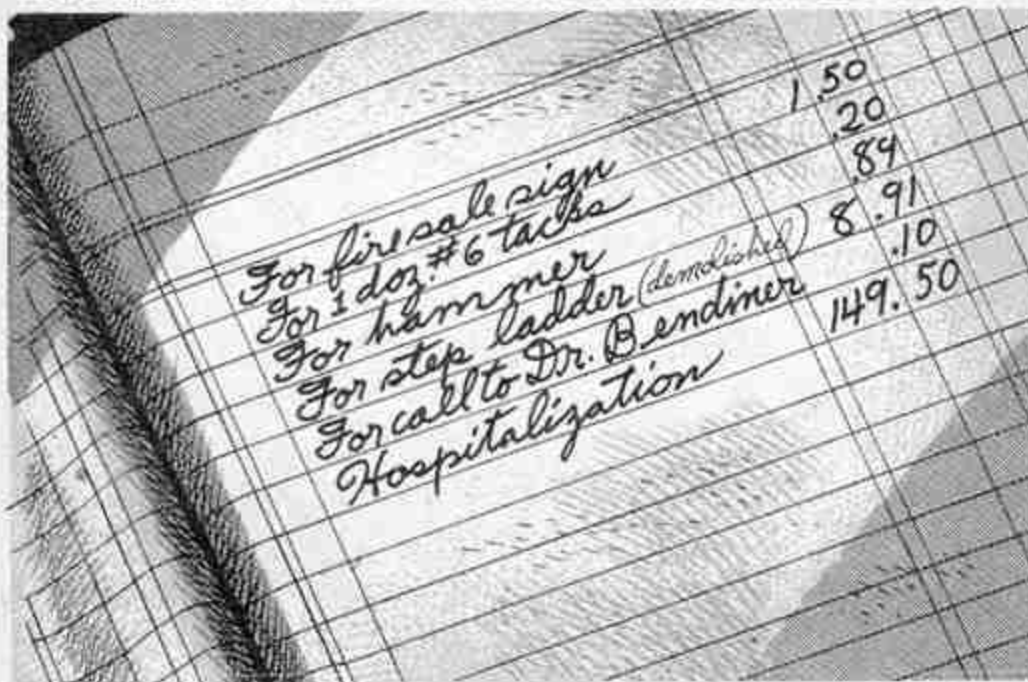 For fire sale sign 1.50
For 1 doz. #6 tacks .20
For hammer .89
For step ladder (demolished) 8.91
For call to Dr. Bendiner .10
Hospitalization 149.50